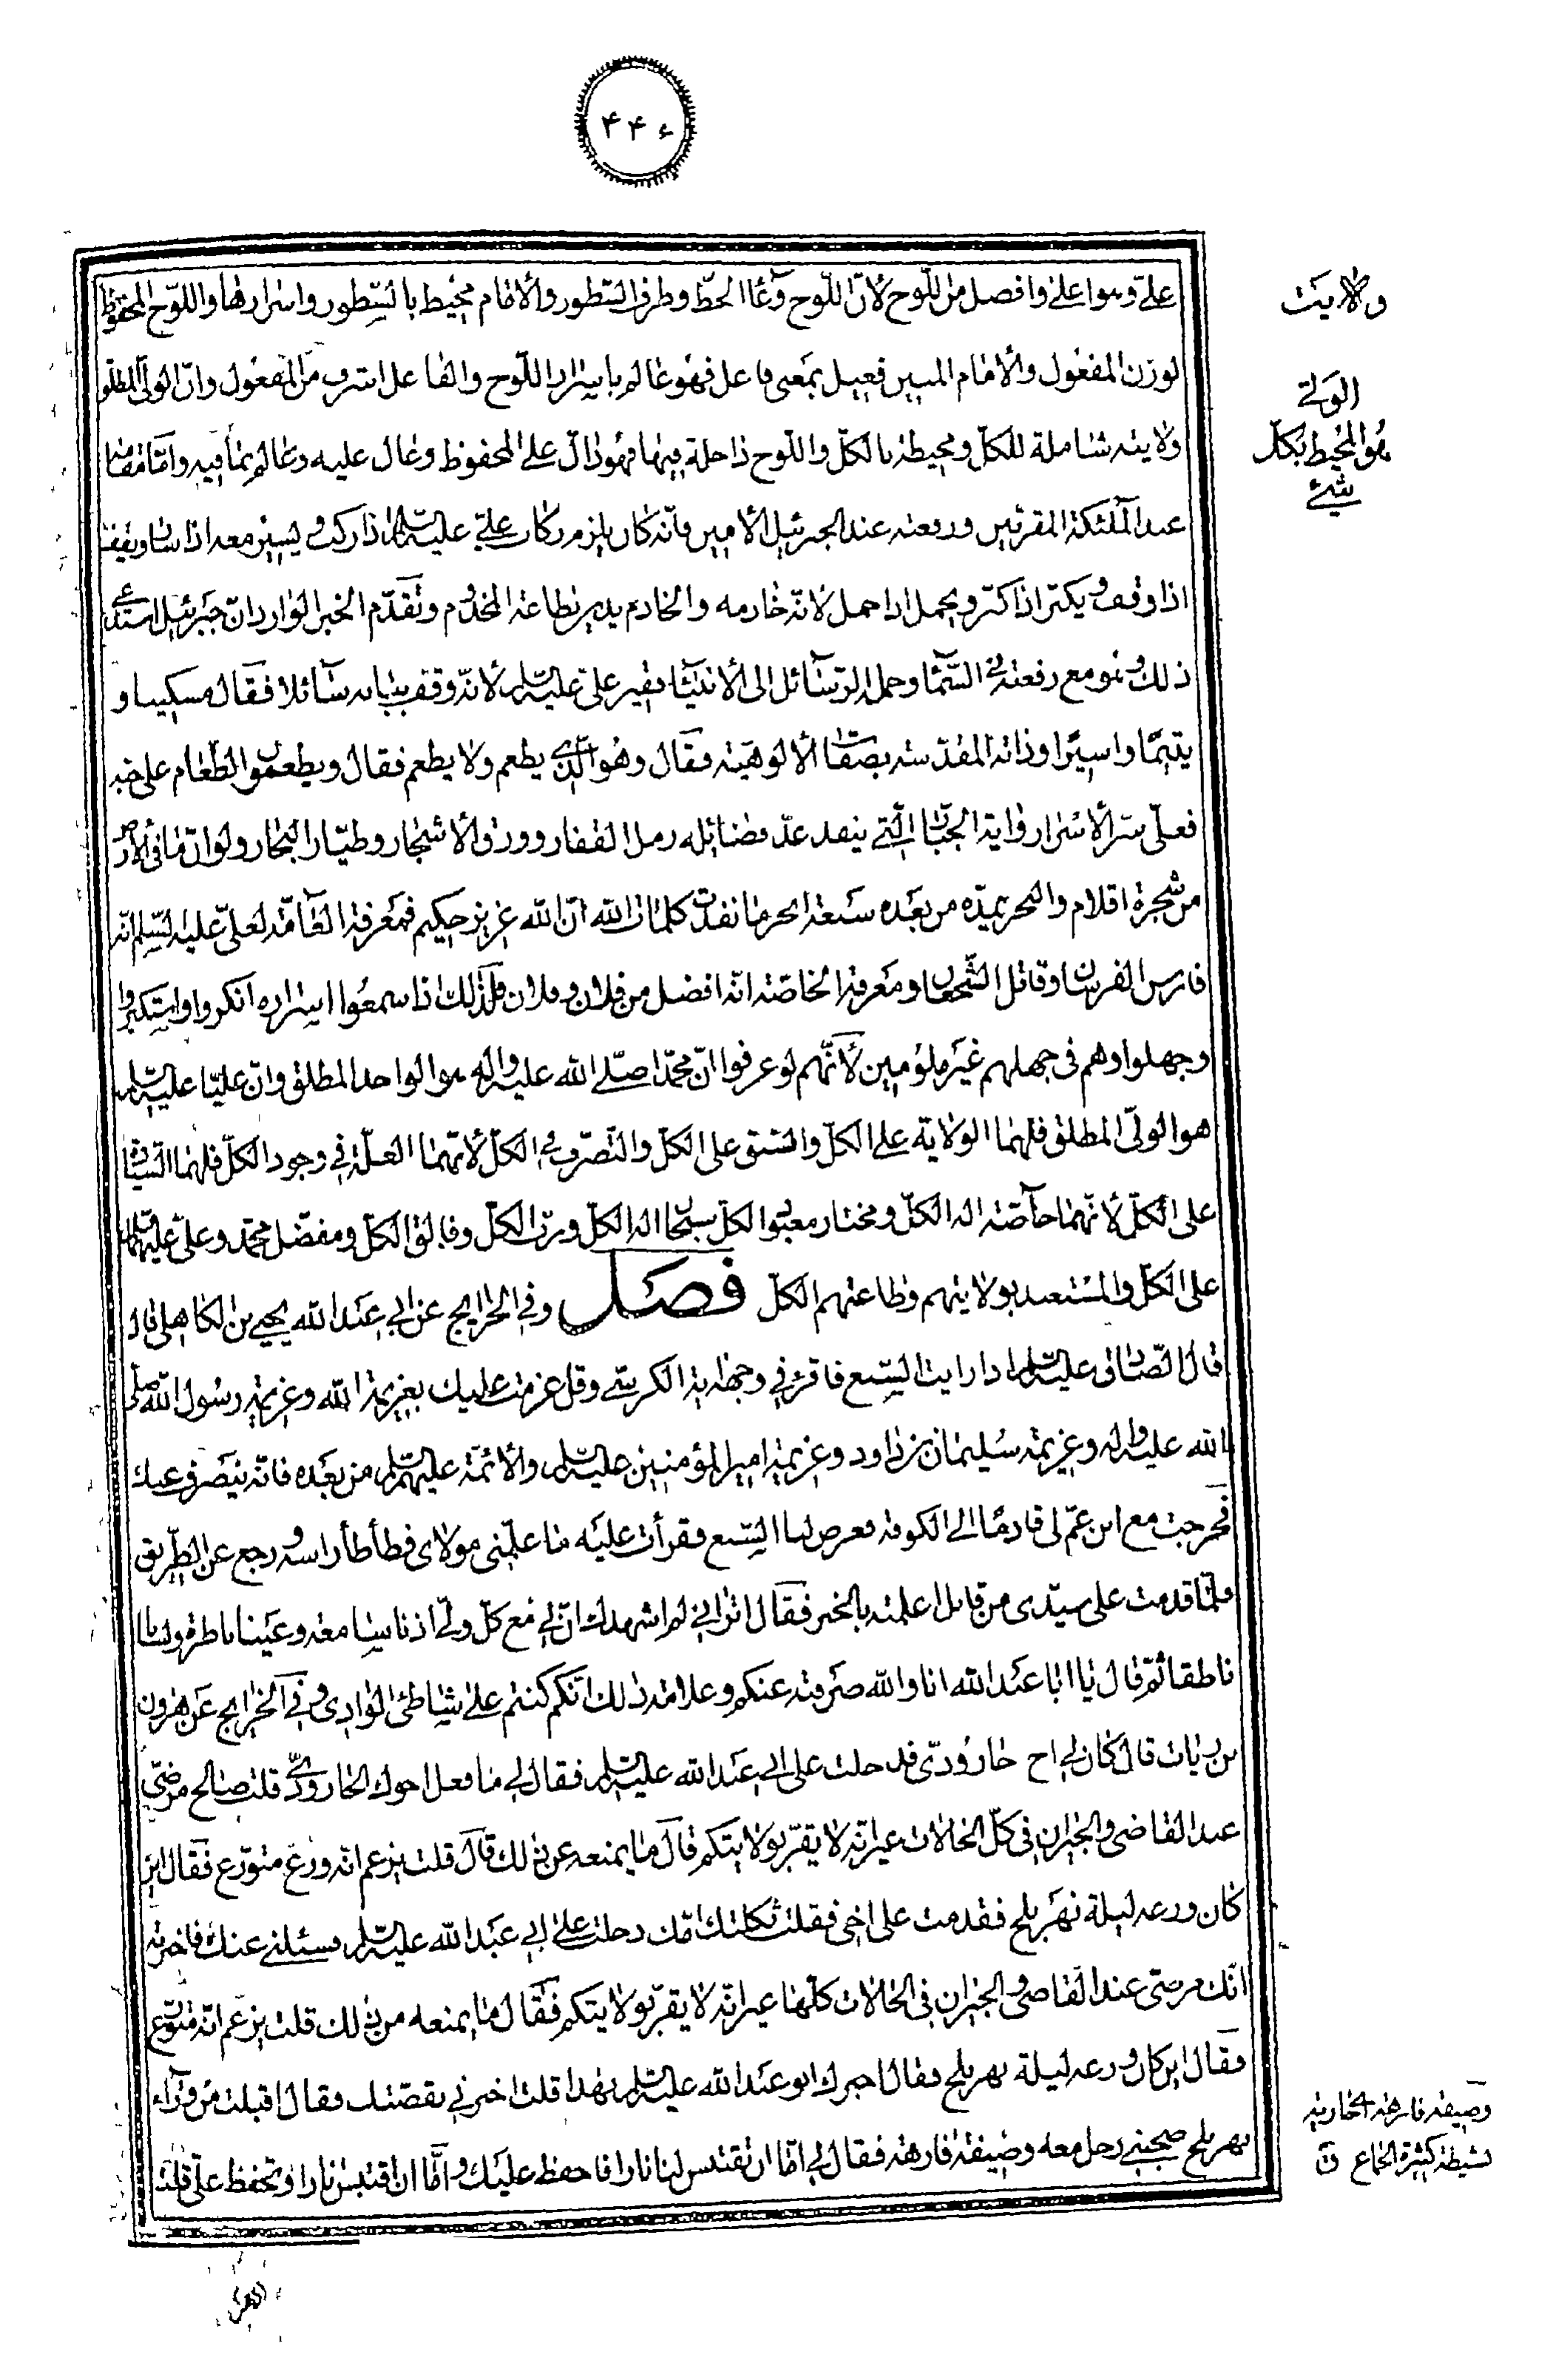 ۴۴۶
علي وهو اعلى وافضل من اللوح لأن اللوح وعاء الخط وظرف السطور والامام محيط بالسطور واسرارها واللوح المحفوظ
لوزن المفعول والامام المبين فعيل بمعنى فاعل فهو عالم باسرار اللوح والفاعل اشرف من المفعول وان الولي المطلق
ولايته شاملة للكل ومحيطة بالكل واللوح داخلة فيها فهو دال على المحفوظ وعال عليه وعالم بما فيه واما مقامه
عند الملئكة المقربين ورفعته عند الجبرئيل الامين فانه كان يلزم ركاب علي عليه السلم اذا ركب ويسير معه اذا سار ويقف
اذا وقف ويكبر اذا كبر ويحمل اذا حمل لانه خادمه والخادم يدير بطاعة المخدوم وتقدم الخبر الوارد ان جبرئيل استدعى
ذلك وهو مع رفعته في السماء وحمل الرسائل الى الانبياء فقير علي عليه السلم لانه وقف ببابه سائلا فقال مسكينا و
يتيما واسيرا وذاته المقدسة بصفات الالوهية فقال وهو الذي يطعم ولا يطعم فقال ويطعمون الطعام على حبه
فعلي سر الاسرار واية الجبار التي ينفد عد فضائله رمل القفار وورق الاشجار وطيار البحار ولو ان ما في الارض
من شجرة اقلام والبحر يمده من بعده سبعة ابحر ما نفدت كلمات الله ان الله عزيز حكيم فمعرفة العامة لعلي عليه السلم انه
فارس الفرسان وقاتل الشجعان ومعرفة الخاصة انه افضل من فلان وفلان فلذلك اذا سمعوا اسراره انكروا واستكبروا
وجهلوا وهم في جهلهم غير ملومين لأنهم لو عرفوا ان محمدا صلى الله عليه واله هو الواحد المطلق وان عليا عليه السلم
هو الولي المطلق فلهما الولاية على الكل والسبق على الكل والتصرف في الكل لأنهما العلة في وجود الكل فلهما السيادة
على الكل لأنهما خاصة اله الكل ومختار معبود الكل سبحان اله الكل ورب الكل وفالق الكل ومفضل محمد وعلي عليهما السلم
على الكل والمستعبد بولايتهم وطاعتهم الكل فصل وفي الخرايج عن ابي عبد الله يحيى بن الكاهلي قال
قال الصادق عليه السلم اذا رايت السبع فاقرء في وجهه اية الكرسي وقل عزمت عليك بعزيمة الله وعزيمة رسول الله صلى
الله عليه واله وعزيمة سليمان بن داود وعزيمة امير المؤمنين عليه السلم والائمة عليهم السلم من بعده فانه ينصرف عنك
فخرجت مع ابن عم لي قادما الى الكوفة فعرض لنا السبع فقرأت عليه ما علمني مولاي فطأطأ راسه ورجع عن الطريق
فلما قدمت على سيدي من قابل اعلمته بالخبر فقال اتراني لم اشهدك ان لي مع كل ولي اذنا سامعة وعينا ناظرة ولسانا
ناطقا ثم قال يا ابا عبد الله انا والله صرفته عنكم وعلامة ذلك انكم كنتم على شاطئ الوادي وفي الخرايج عن هرون
بن رئاب قال كان لي اخ جارودي فدخلت على ابي عبد الله عليه السلم فقال لي ما فعل اخوك الجارودي قلت صالح مرضي
عند القاضي والجيران في كل الحالات غير انه لا يقر بولايتكم قال ما يمنعه عن ذلك قال قلت يزعم انه ورع متورع فقال اين
كان ورعه ليلة نهر بلخ فقدمت على اخي فقلت ثكلتك امك دخلت على ابي عبد الله عليه السلم فسئلني عنك فاخبرته
انك مرضي عند القاضي والجيران في الحالات كلها غير انه لا يقر بولايتكم فقال ما يمنعه من ذلك قلت يزعم انه متورع
فقال اين كان ورعه ليلة نهر بلخ فقال اخبرك ابو عبد الله عليه السلم بهذا قلت اخبرني بقصتك فقال اقبلت من وراء
نهر بلخ صحبني رجل معه وصيفة فارهة فقال لي اما ان تقتبس لنا نارا فاحفظ عليك واما ان اقتبس نارا وتحفظ علي قلت
ولايت
الولي
هو المحيط بكل
شيء
وصيفة فارهة اي جارية
نشيطة كثيرة الجماع ق